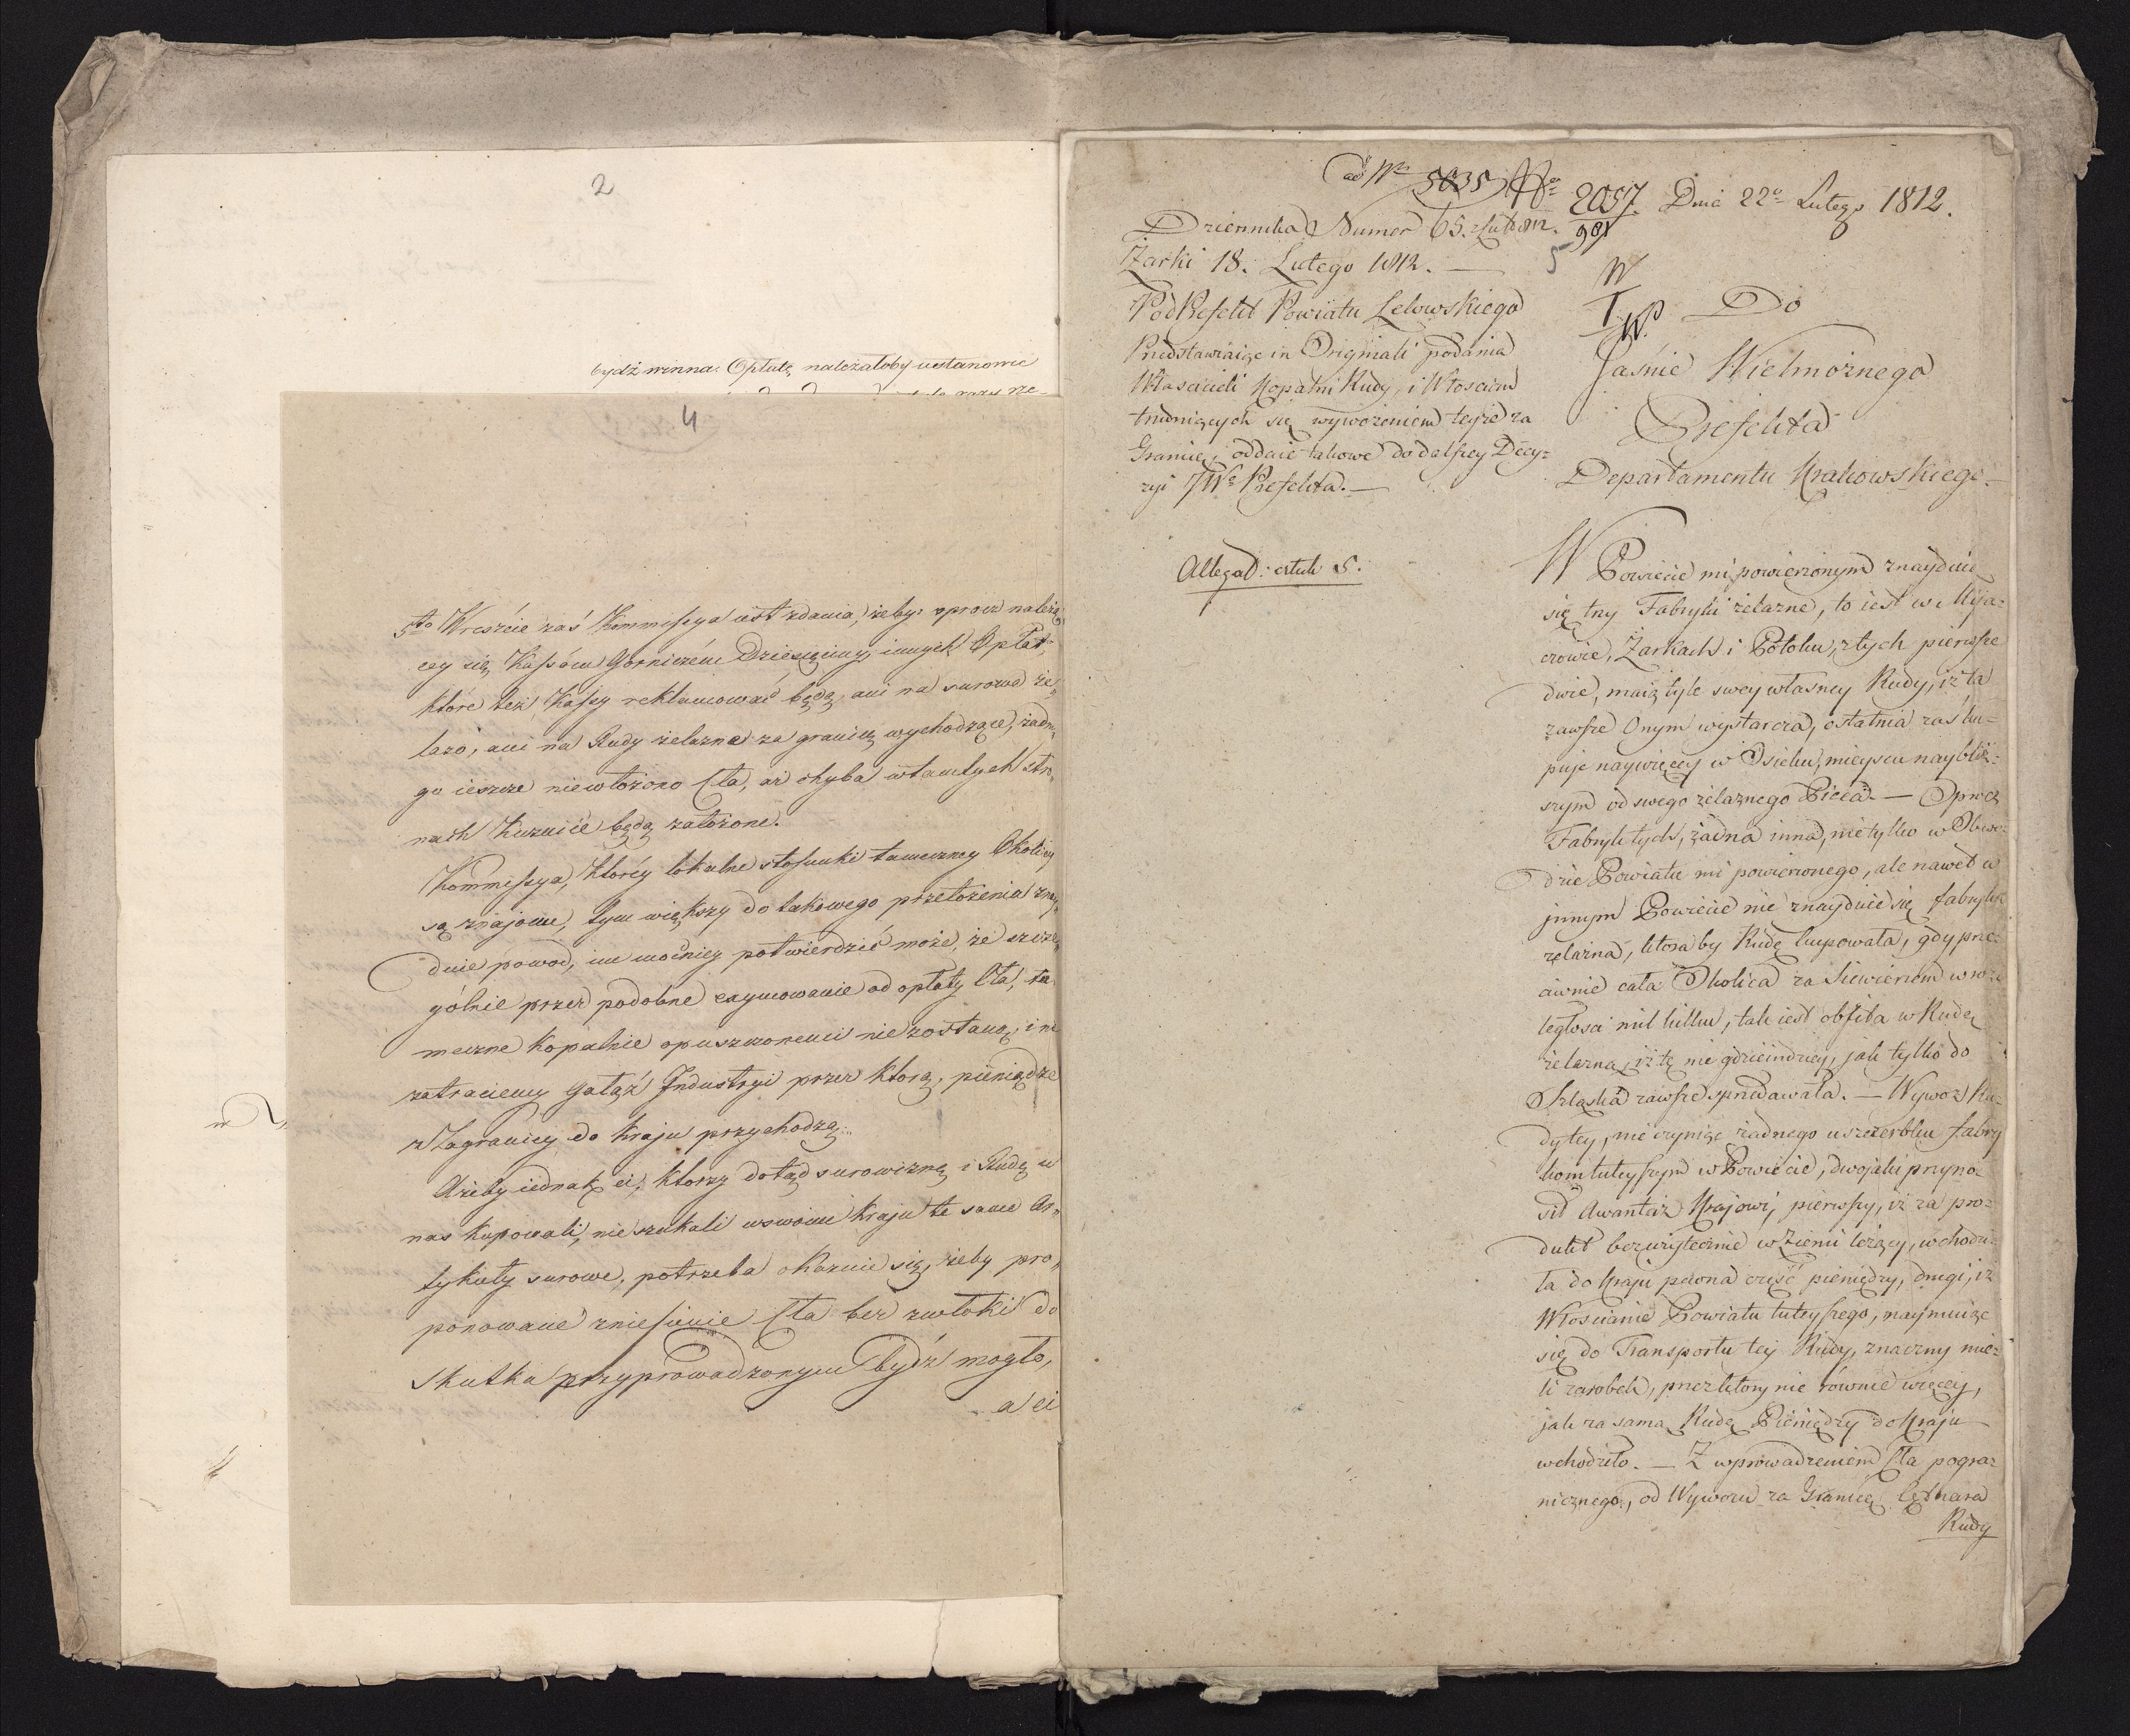 2
bydź winna. Opłatę należałoby ustanowić
4
5to Wreszcie zaś Kommissya iest zdania, żeby oprocz należą
cey się Kassom Górniczém Dziesięciny, innych Opłat,
które też Kassy reklamować będą, ani na surowe że„
lazo, ani na Rudy żelazne za granicę wychodzące, żadne„
go ieszcze niewłożono Cła, aż chyba w tamtych stro„
nach Kuznice będą założone.
Kommissya, którey lokalne stosunki tameczney Okolicy
są znajome, tym większy do takowego przełożenia znay„
duie powod, im mocniey potwierdzić może, że szcze„
gólnie przez podobne zaymowanie od opłaty Cła, ta
meczne kopalnie opuszczonemi nie zostaną, i nie
zatraciemy Gałąź Industryi przez którą, pieniądze
z Zagranicy do kraju przychodzą.
Ażeby iednak ci, którzy dotąd surowiznę i Rudę u
nas kupowali, nie szukali w swoim kraju te same Ar„
tykuły surowe, potrzeba okazuie się, żeby pro„
ponowane zniesienie Cła bez zwłoki do
skutku przyprowadzonym bydź mogło,
a ci
ad Nro 5635 Nro 2057. Dnia 22o Lutego 1812.
981
Dziennika Numer 65. Lut 812.
5
Żarki 18. Lutego 1812. —
PodPrefekt Powiatu Lelowskiego
Przedstawiaiąc in Originali podania
Włascicieli Kopalni Rudy, i Włoscian
trudniących się wywożeniem teyże za
Granicę, oddaie takowe do dalszey Decy=
zyi JWo Prefekta. —
Allegat: sztuk 5.
W
Do
Jaśnie Wielmożnego
Prefekta
Departamentu Krakowskiego —
W Powiecie mi powierzonym znayduie
się trzy Fabryki żelazne, to iest w Mija=
czowie, Żarkach i Potoku, z tych pierwsze
dwie, maią tyle swey własney Rudy, iż ta
zawsze Onym wystarcza, ostatnia zaś ku=
puje naywięcey w Osieku, mieyscu naybliż=
szym od swego żelaznego Pieca. — Oprocz
Fabryk tych, żadna inna, nie tylko w Obwo=
dzie Powiatu mi powierzonego, ale nawet w
innym Powiecie nie znayduie się fabryka
żelazna, któraby Rudę kupowała, gdy prze=
ciwnie cała Okolica za Siewierzem w roz=
ległosci mil kilku, tak iest obfita w Rudę
żelazną, iż tę nie gdzieindziey, jak tylko do
Szląska zawsze sprzedawała. — Wywoz Ru=
dy tey, nie czyniąc żadnego uszczerbku fabry
kom tuteyszym w Powiecie, dwojaki przyno=
sił Awantaż Krajowi, pierwszy, iż za pro=
dukt bezużytecznie w Ziemi leżący, wchodzi=
ła do Kraju pewna część pieniędzy, drugi, iż
Włoscianie Powiatu tuteyszego, naymuiąc
się do Transportu tey Rudy, znaczny mie=
li zarobek, przez który nie równie więcey,
jak za samą Rudę Pieniędzy do Kraju
wchodziło. — Z wprowadzeniem Cła pogra=
nicznego, od Wywozu za Granicę Cętnara
Rudy